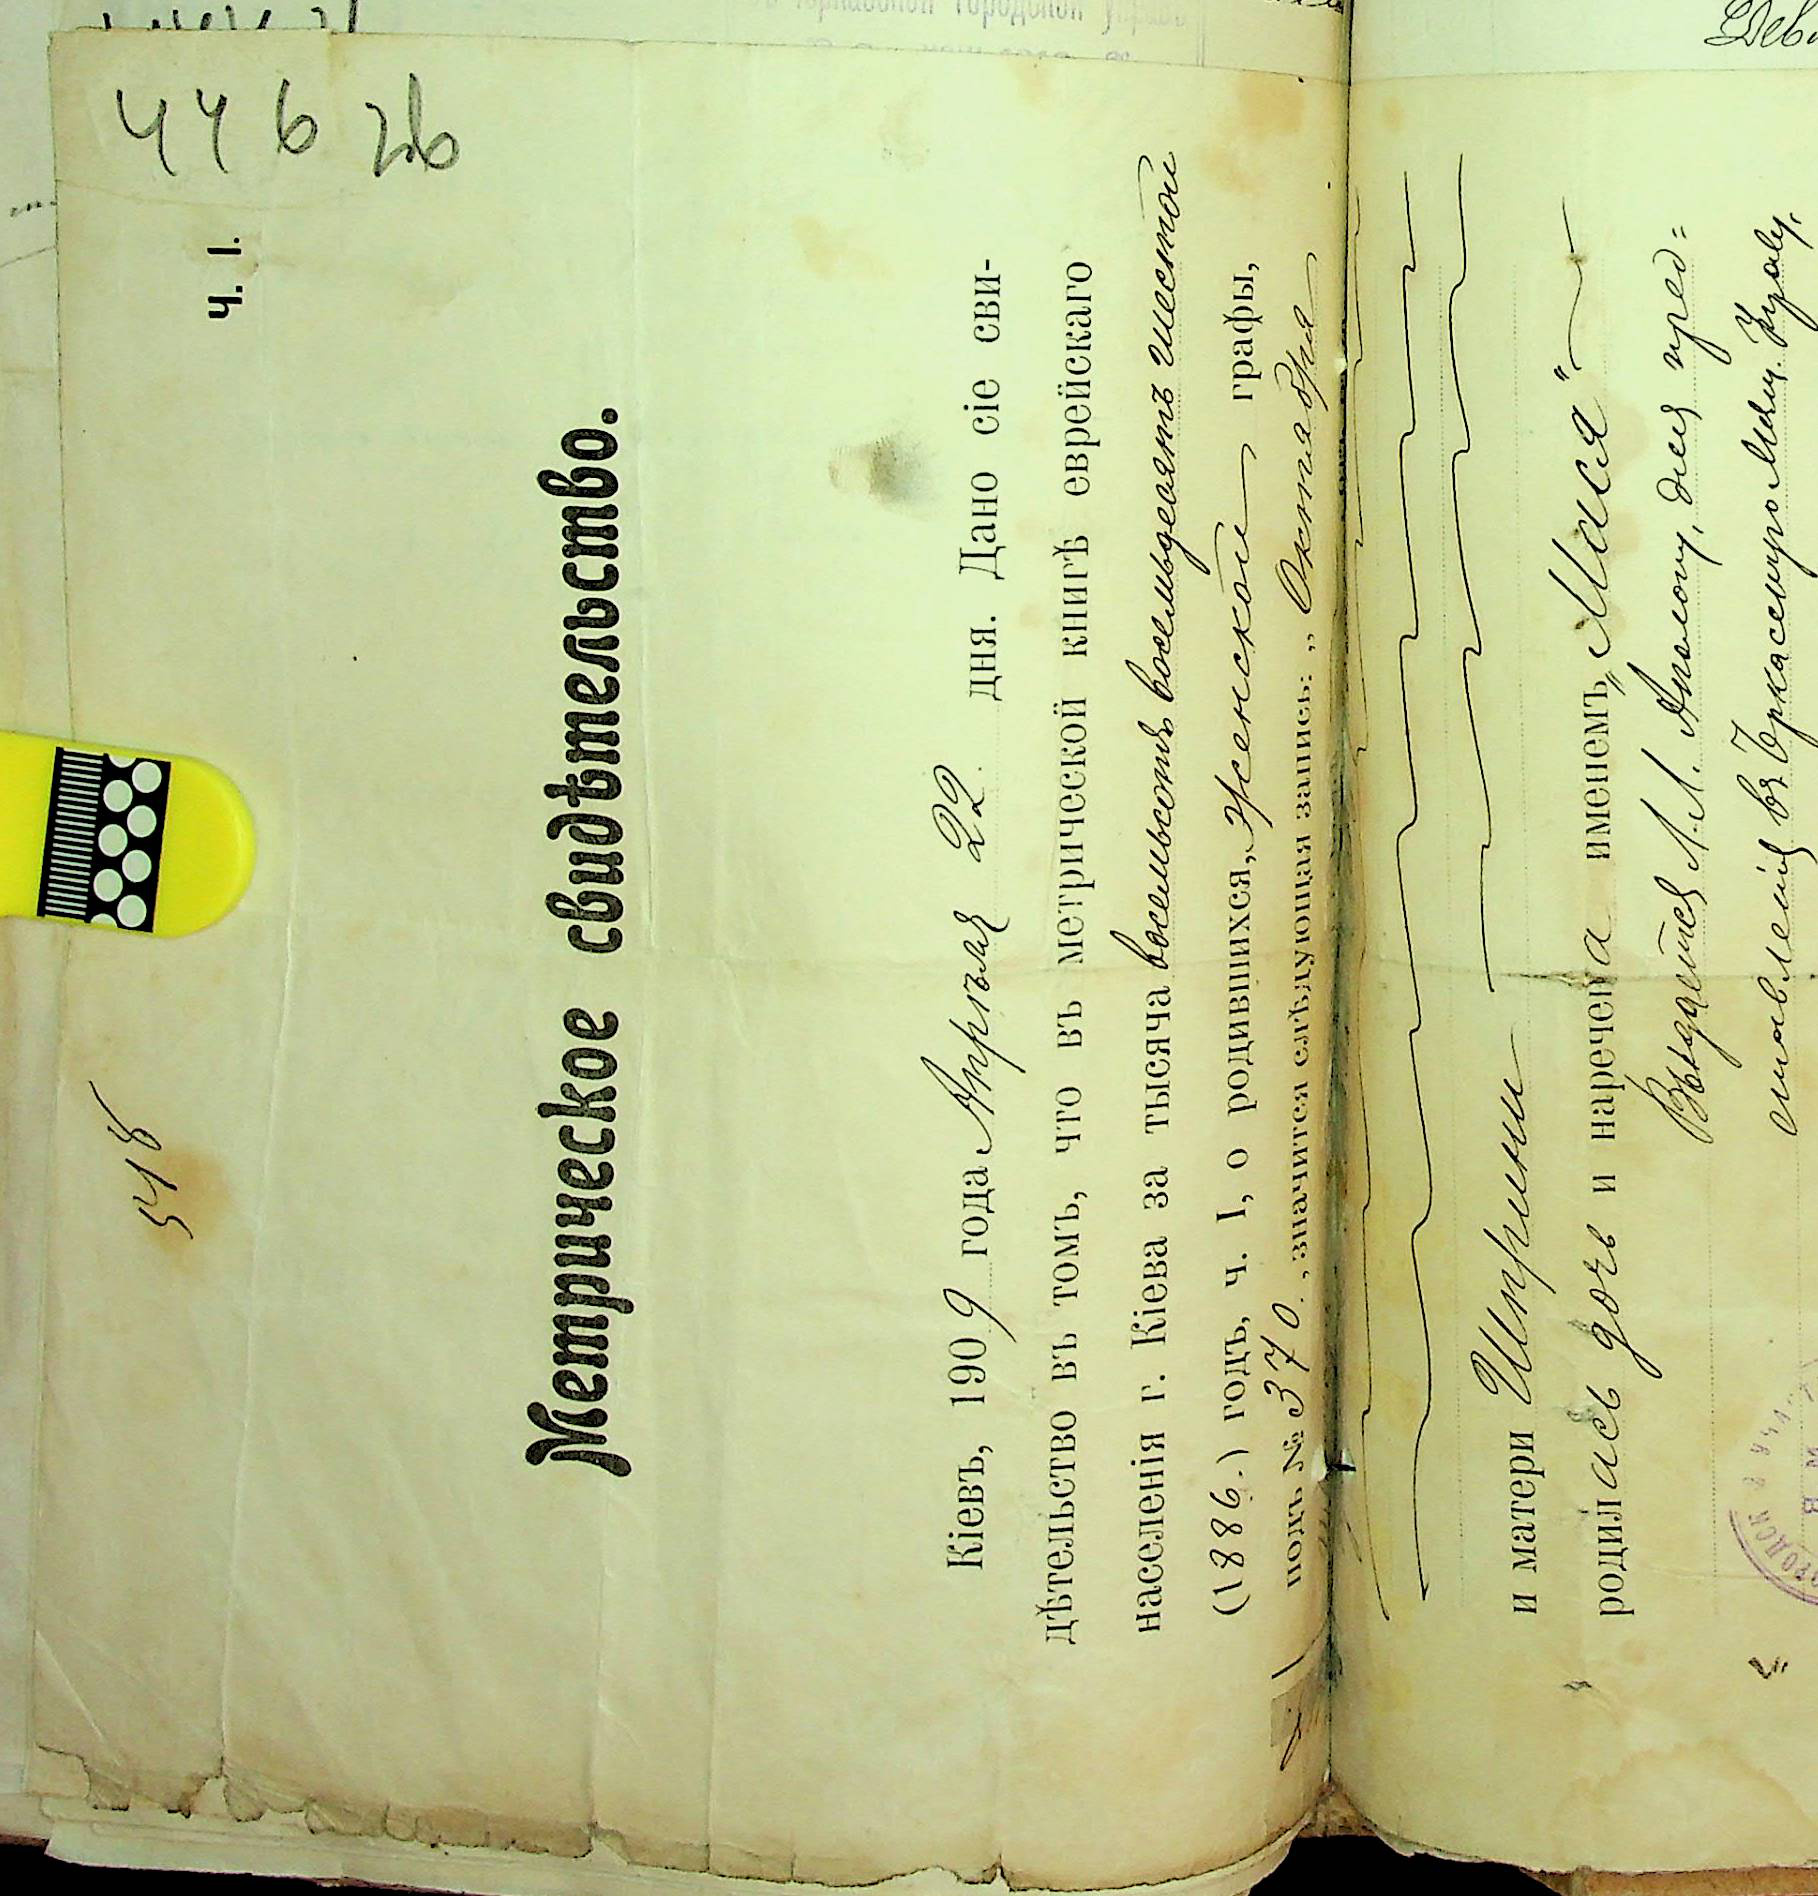 446 26
Ч. I.
548
Метрическое свидѣтельство.
Кіевъ, 1909 года Апрѣля 22 дня. Дано сіе сви-
дѣтельство въ томъ, что въ метрической книгѣ еврейскаго
населенія г. Кіева за тысяча восемьсотъ восемьдесятъ шестой
(1886.) годъ, ч. I, о родившихся, „женской графы,
подъ № 370, значится слѣдующая запись: „Октября
и матери Шприни
родилась дочь и наречена именемъ „Мися“
Выдается Л. Л. Апольскому, для пред=
ставленія въ Черкасскую Мѣщ. Управу.